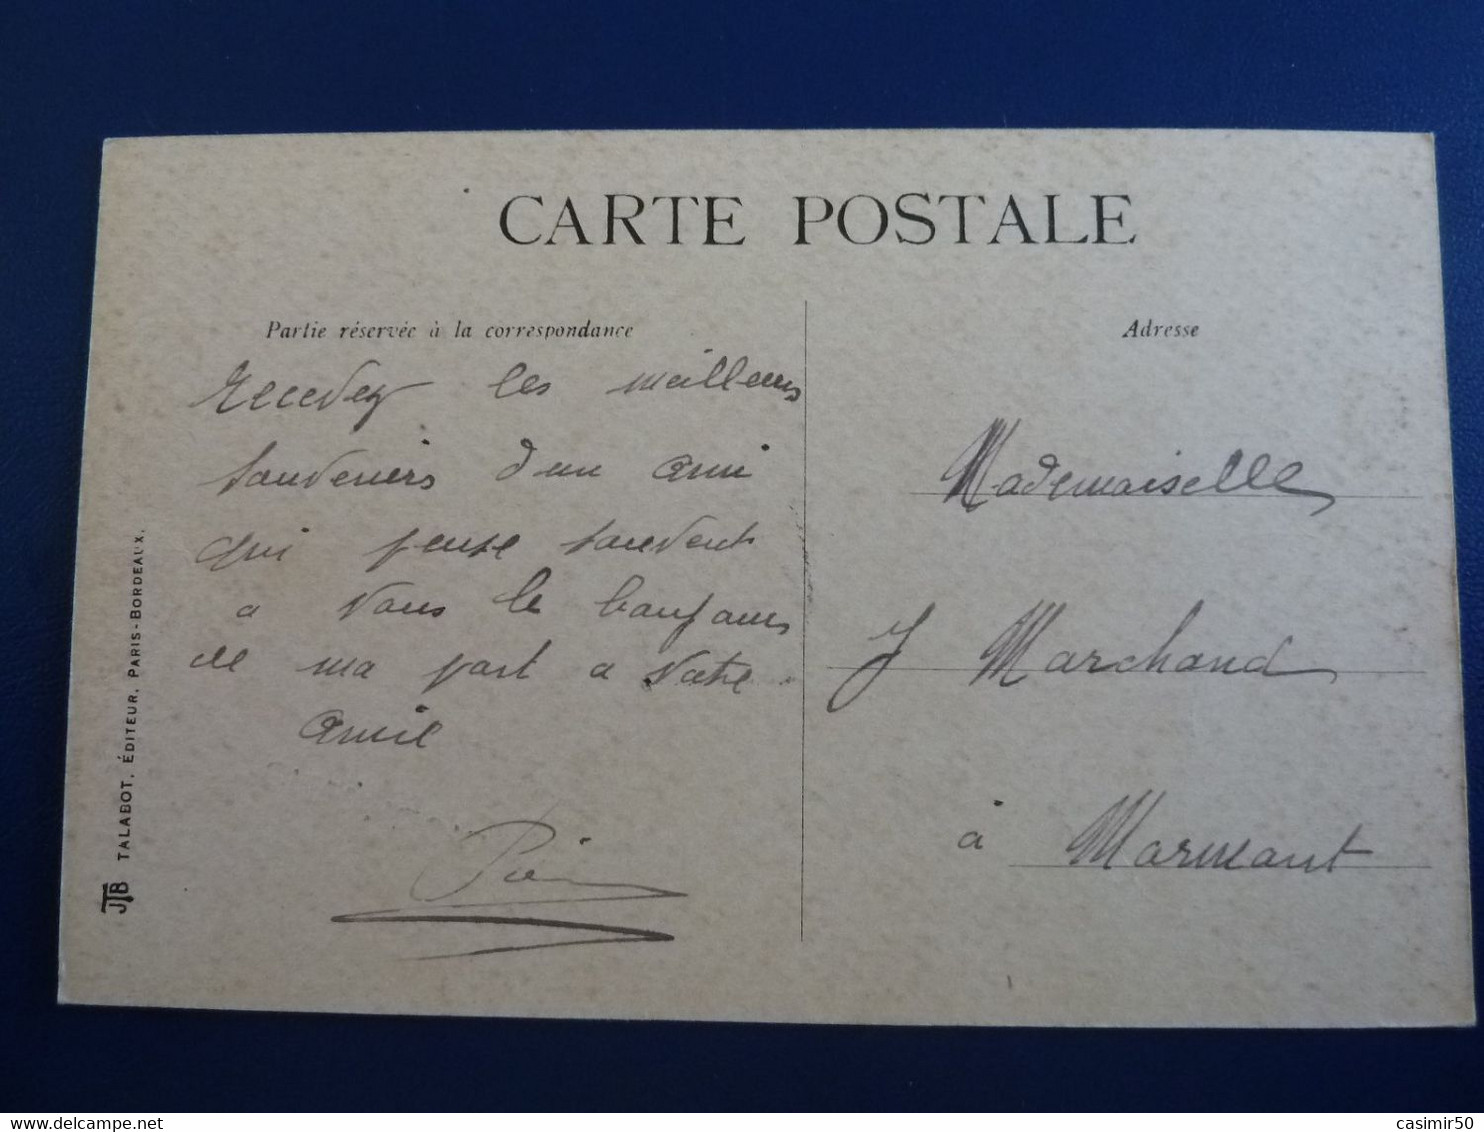 CARTE POSTALE
Partie réservée à la correspondance
Recevez les meilleurs
souvenirs d'un ami
qui pense souvent
a vous le bonjour
de ma part a votre
amie
Adresse
Mademoiselle
J Marchand
à Marmant
JTB TALABOT, ÉDITEUR, PARIS-BORDEAUX.
casimir50